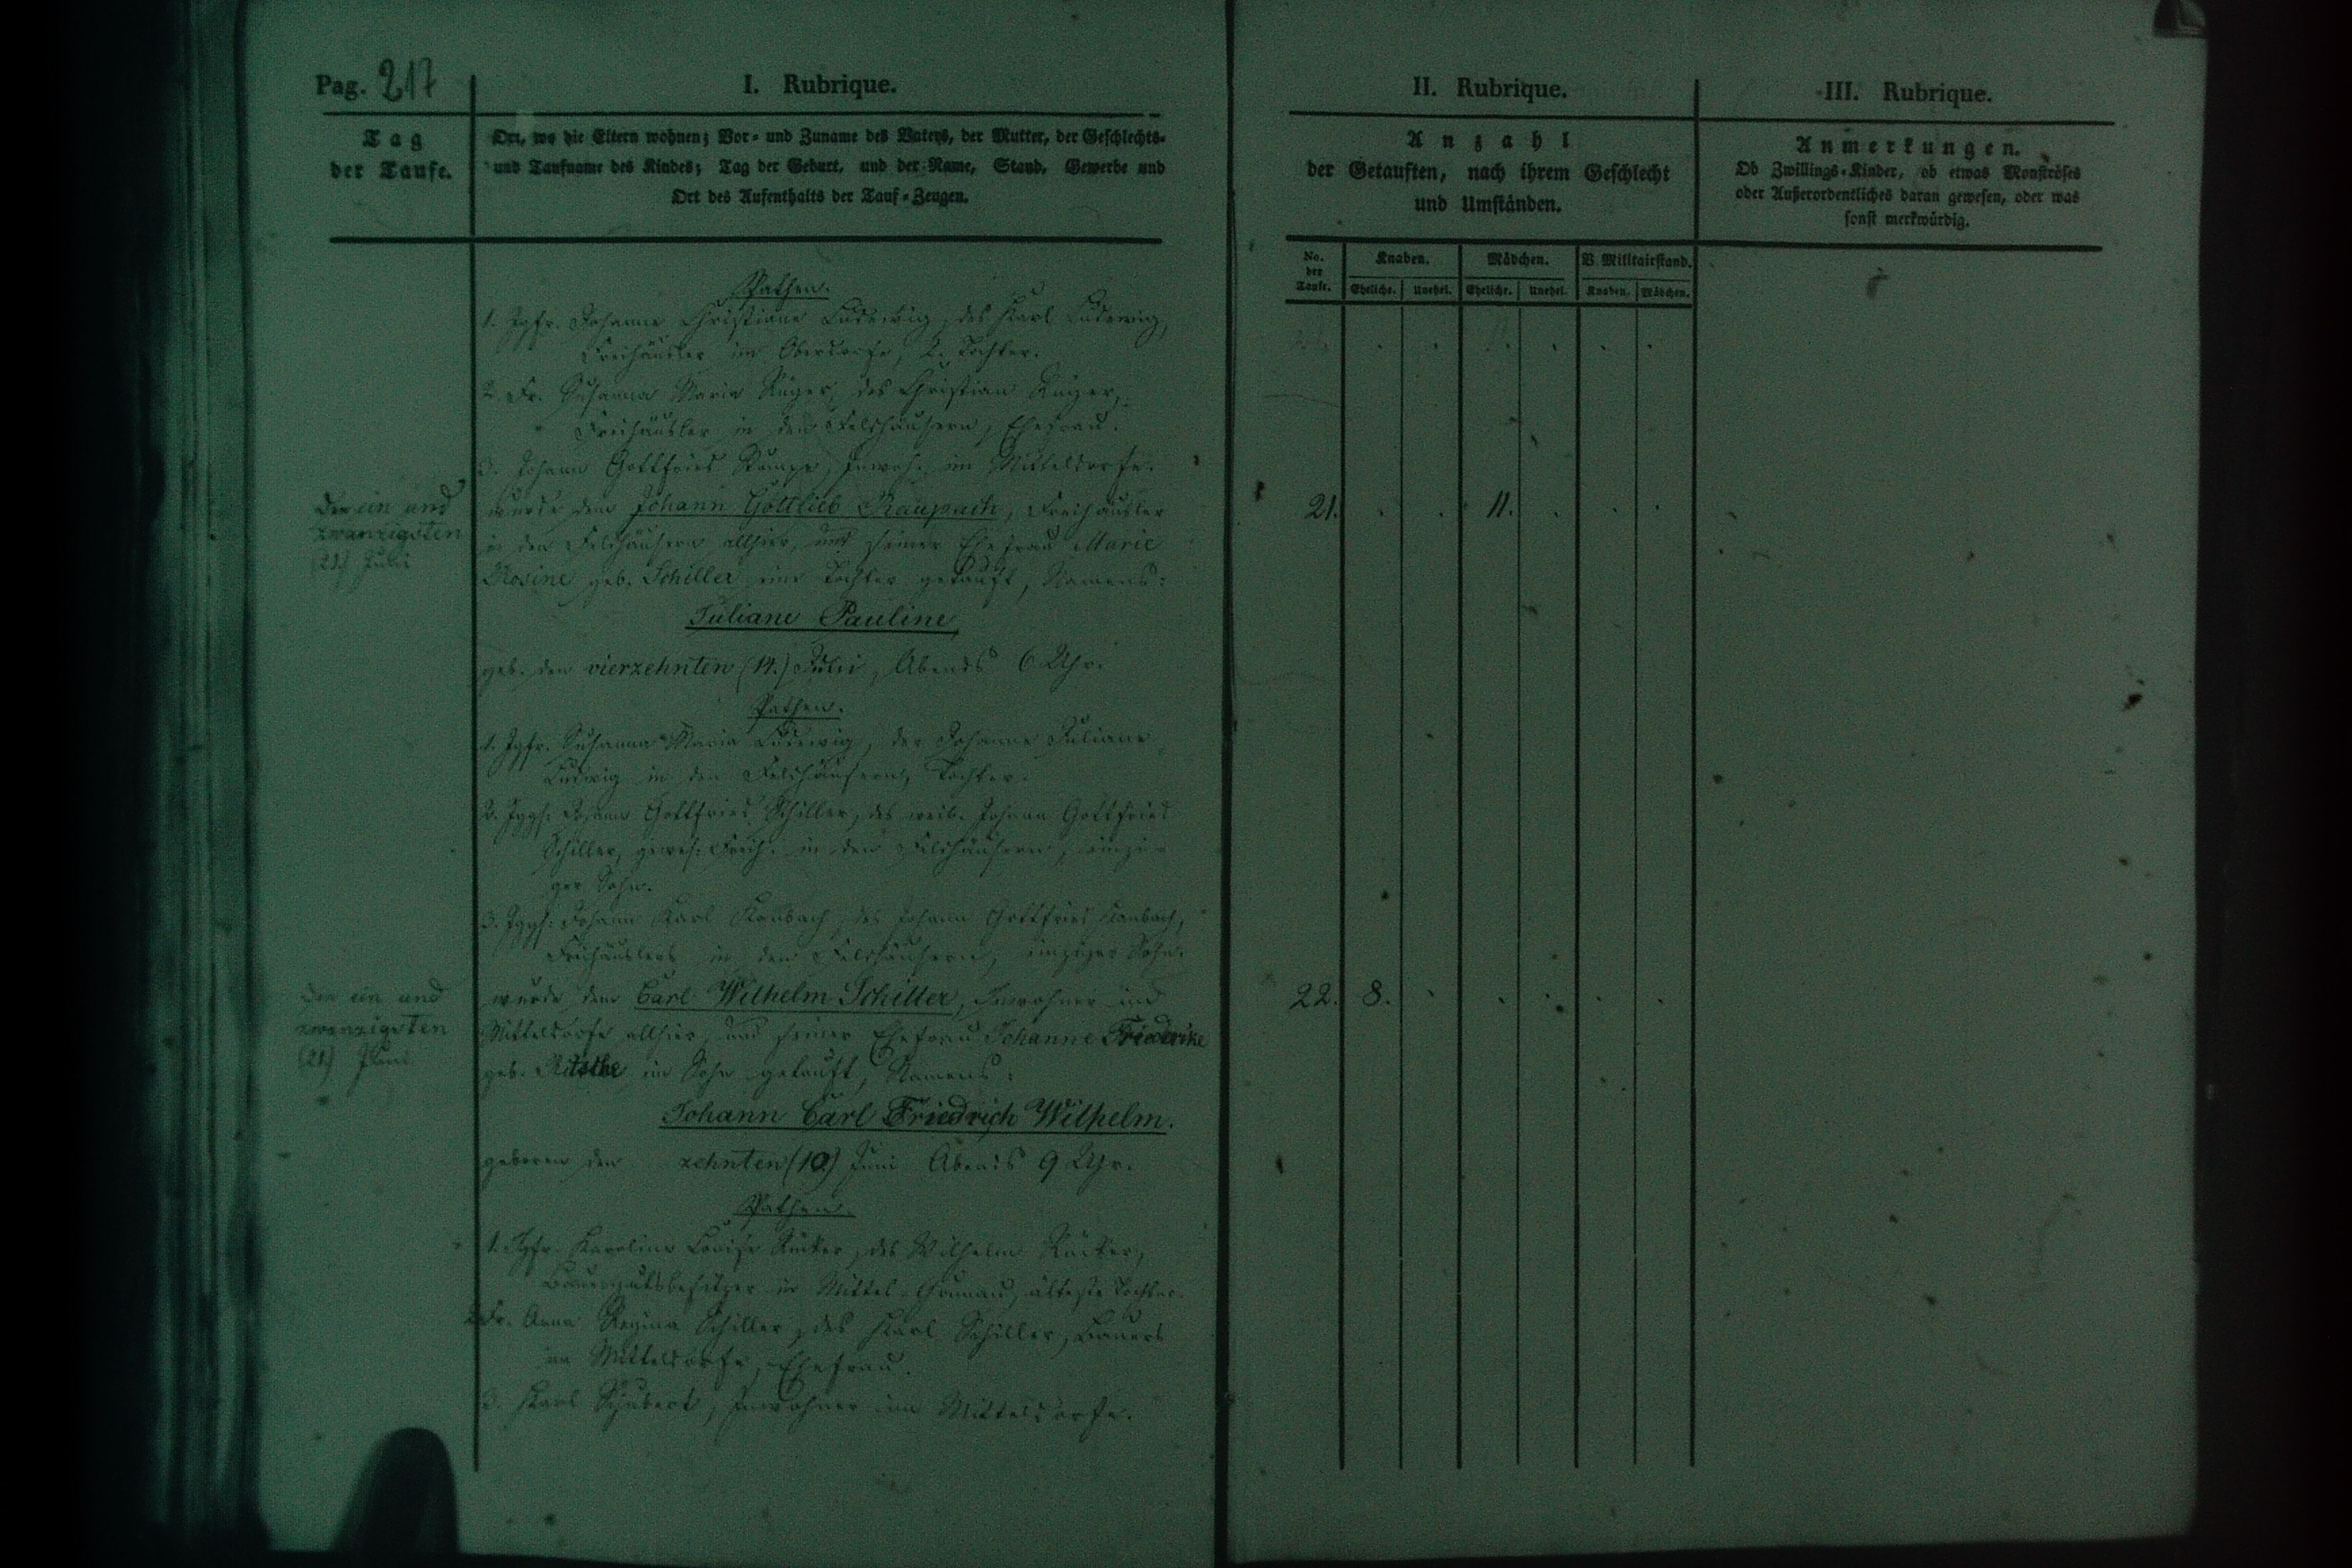 Pag. 217
I. Rubrique.
Tag
der Taufe.
Ort, wo die Eltern wohnen; Vor- und Zuname des Vaters, der Mutter, der Geschlechts-
und Taufname des Kindes; Tag der Geburt, und der Name, Stand, Gewerbe und
Ort des Aufenthalts der Tauf-Zeugen.
Pathen.
1. Jgfr. Johanne Christiane Ludewig, des Karl Ludewig,
Freihäusler im Oberdorfe, 2. Tochter.
2. Fr. Susanna Maria Rüger, des Christian Rüger,
Freihäusler in den Feldhäusern, Ehefrau.
3. Johann Gottfried Inwoh. im Mitteldorfe.
Den ein und
zwanzigsten
(21.) Juli
wurde dem Johann Gottlieb Raupach, Freihäusler
in den Feldhäusern allhier, und seiner Ehefrau Marie
Rosine geb. Schiller eine Tochter getauft, Namens:
Juliane Pauline
geb. den vierzehnten (14.) Juli, Abends 6 Uhr.
Pathen.
1. Jgfr. Susanna Maria Ludewig, der Johanne Juliane
Ludwig in den Feldhäusern, Tochter.
2. Jggs. Johann Gottfried Schiller, des weil. Johann Gottfried
Schiller, gewes. Freih. in den Feldhäusern, einzi-
ger Sohn.
3. Jggs. Johann Karl Kambach, des Johann Gottfried Kambach,
Freihäuslers in den Feldhäusern, einziger Sohn.
Den ein und
zwanzigsten
(21)
wurde dem Carl Wilhelm Schiller, Inwohner im
Mitteldorfe allhier, und seiner Ehefrau Johanne Friederike
geb. ein Sohn getauft, Namens:
Johann Carl Friedrich Wilhelm.
geboren den zehnten (10) Juni Abends 9 Uhr.
Pathen.
1. Jgfr. Karoline Louise Rücker, des Wilhelm Rücker,
Bauergutsbesitzer in Mittel-Grunau, älteste Tochter.
2. Fr. Anna Regina Schiller, des Karl Schiller, Bauers
im Mitteldorfe, Ehefrau.
3. Karl Schubert, Inwohner im Mitteldorfe.
II. Rubrique.
Anzahl
der Getauften, nach ihrem Geschlecht
und Umständen.
No.
der
Taufe.
Knaben.
Mädchen.
V. Militairstand.
Eheliche. Unehel. Eheliche. Unehel. Knaben. Mädchen.
21. 11.
22. 8.
III. Rubrique.
Anmerkungen.
Ob Zwillings-Kinder, ob etwas Monströses
oder Außerordentliches daran gewesen, oder was
sonst merkwürdig.